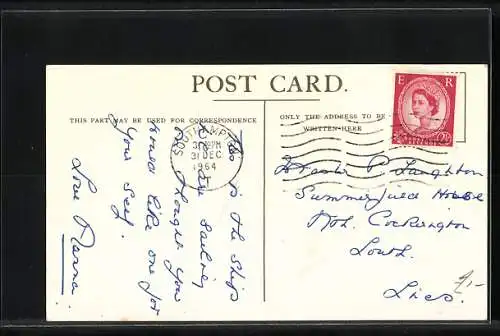 POST CARD.
THIS PART MAY BE USED FOR CORRESPONDENCE
ONLY THE ADDRESS TO BE
WRITTEN HERE
E R
2½
SOUTHAMPTON
PM
31 DEC
1964
This is the Ships
we are Sailing
on, thought you
would like one for
your self.
Love Nanna
Master P. Laughton
Summerfield House
Nth. Cockerington
Louth.
Lincs.